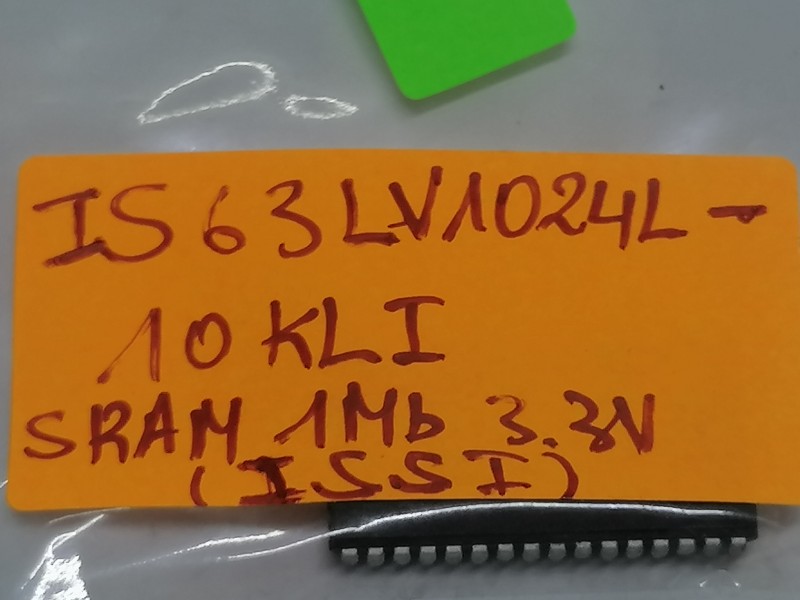 IS63LV1024L-
10KLI
SRAM 1Mb 3.3V
(ISSI)